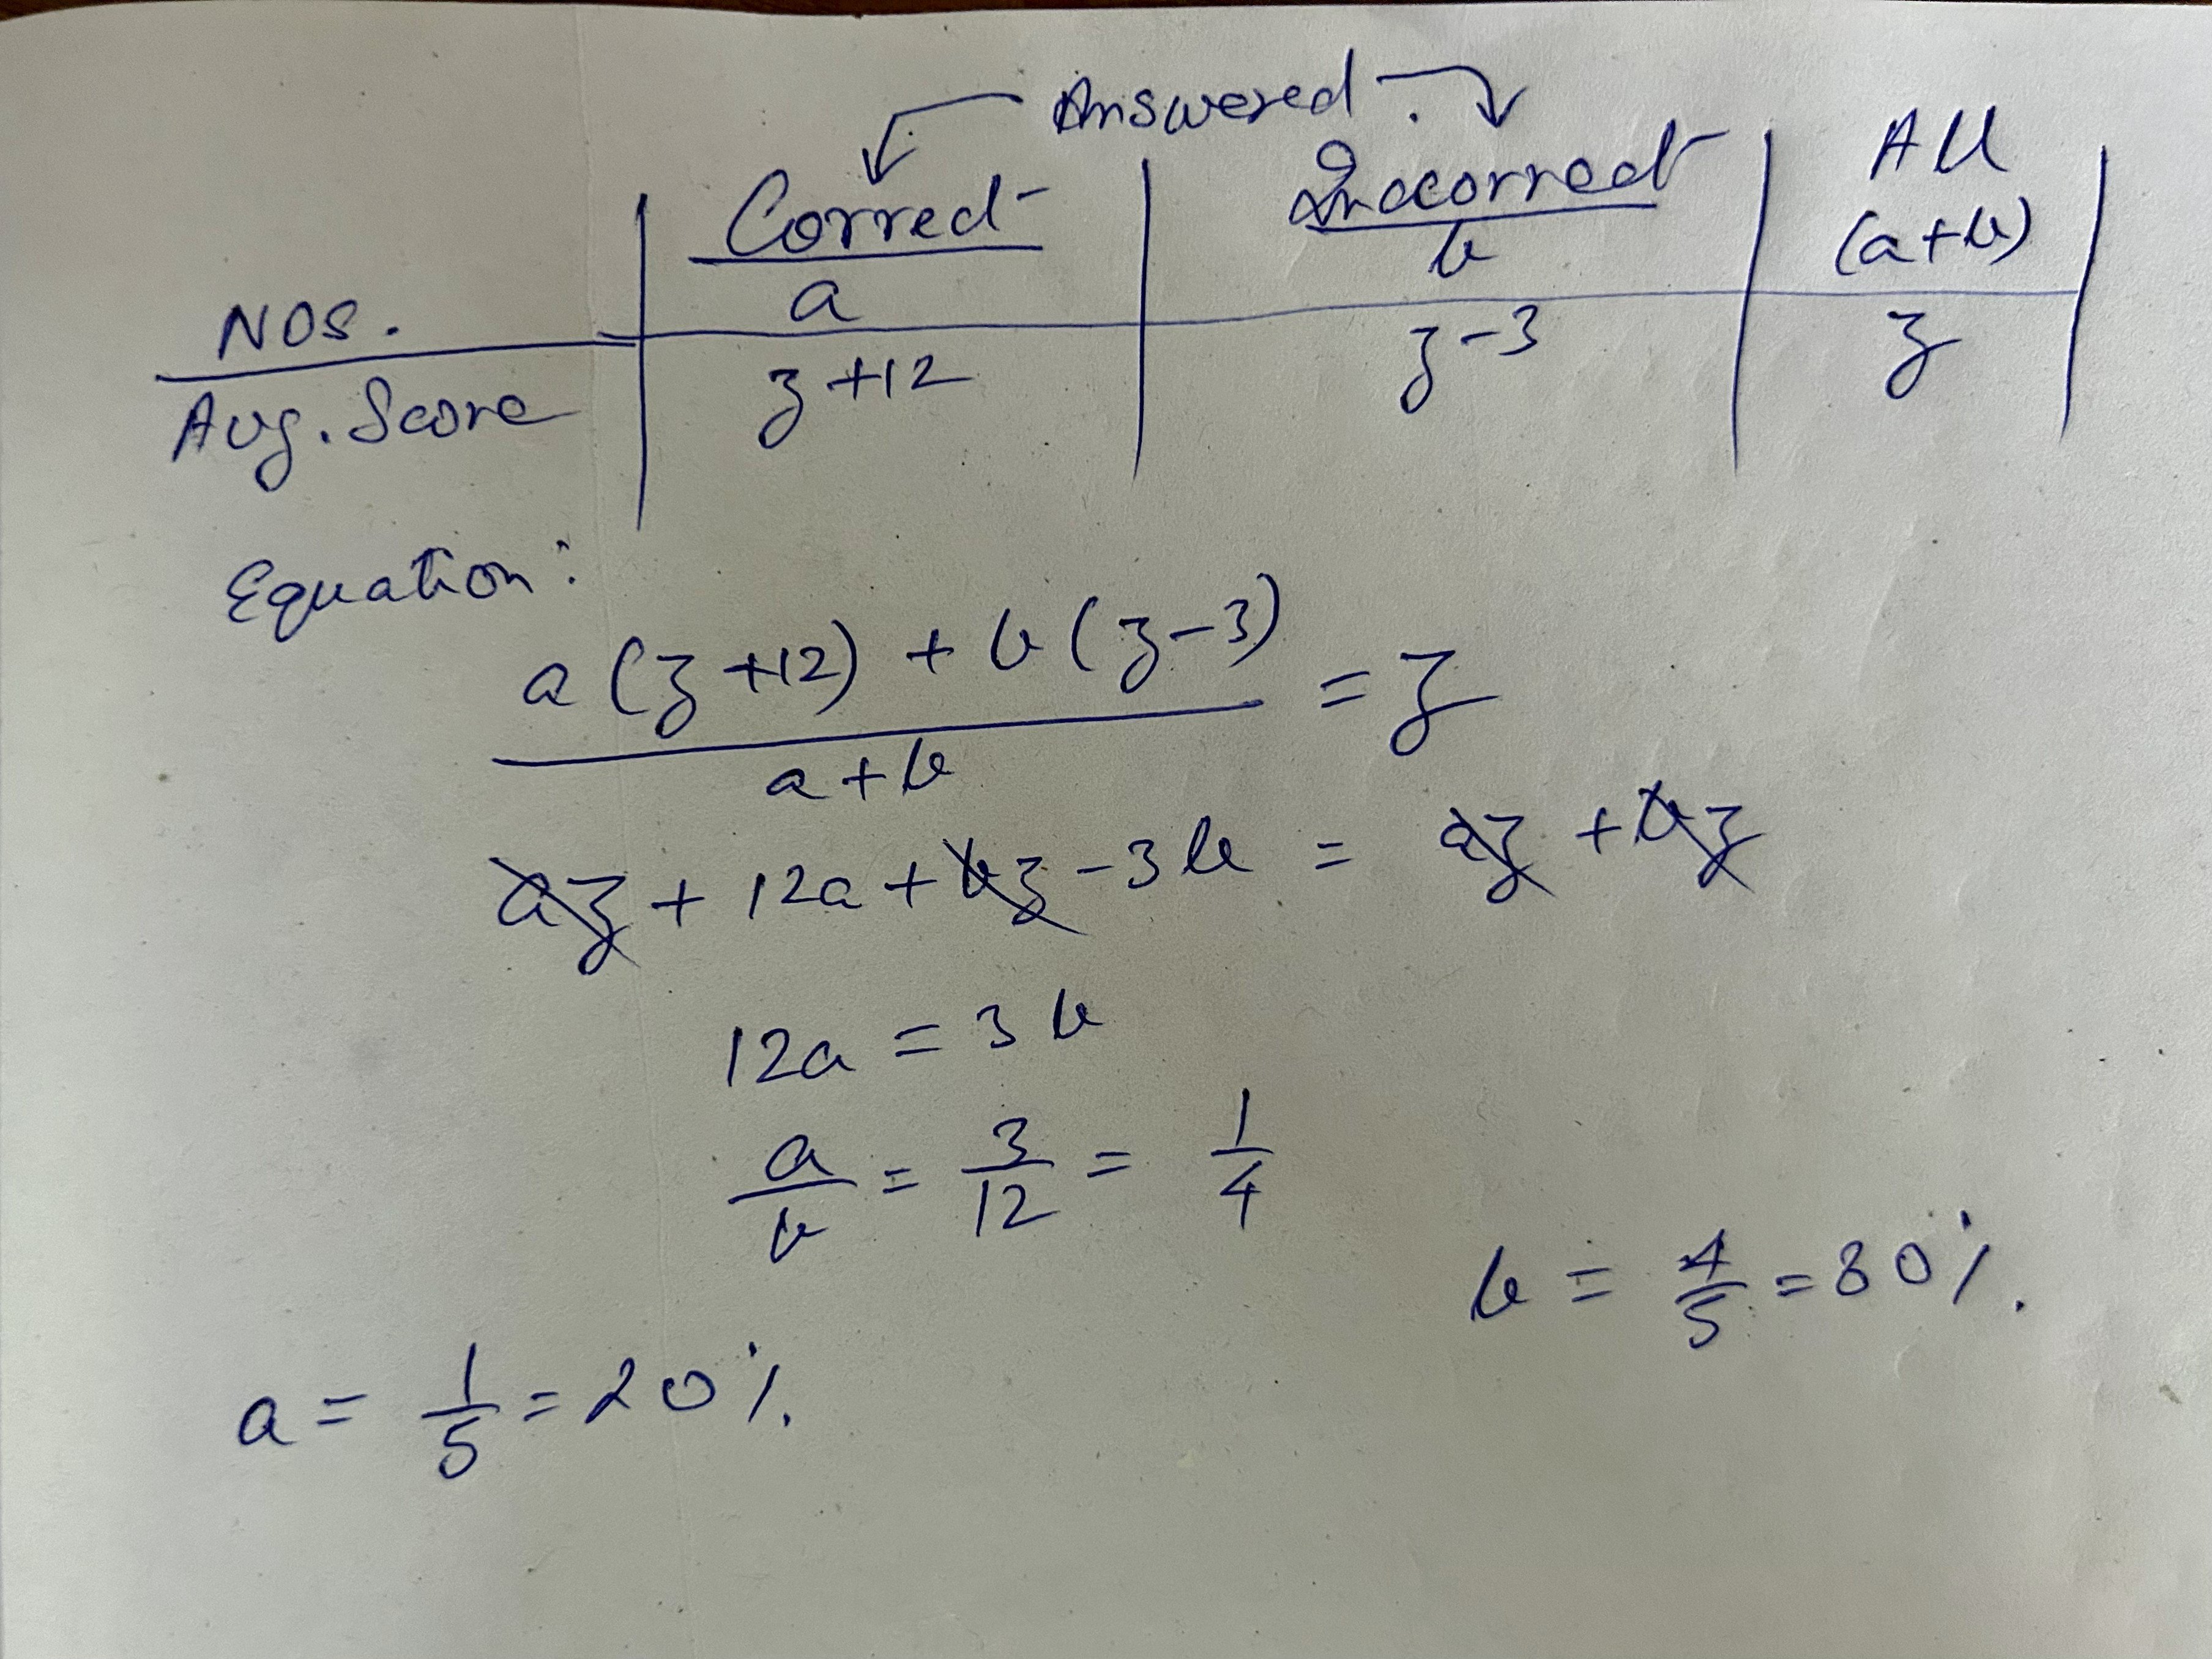 Answered.
Correct | Incorrect | All
NOS. | a | b | (a+b)
Avg. Score | z+12 | z-3 | z
Equation:
a(z+12) + b(z-3) / a+b = z
az + 12a + bz - 3b = az + bz
12a = 3b
a/b = 3/12 = 1/4
b = 4/5 = 80%.
a = 1/5 = 20%.